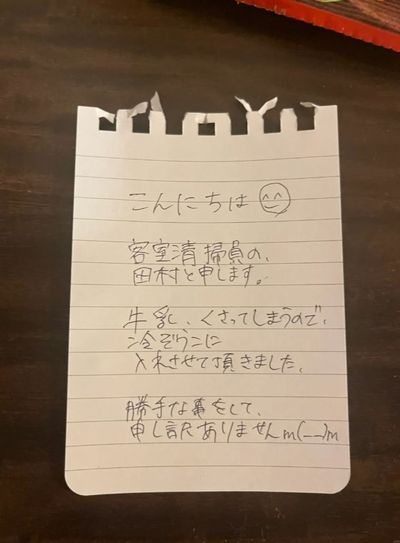 こんにちは
客室清掃員の、
田村と申します。
牛乳、くさってしまうので、
冷ぞうこに
入れさせて頂きました。
勝手な事をして、
申し訳ありませんm(__)m